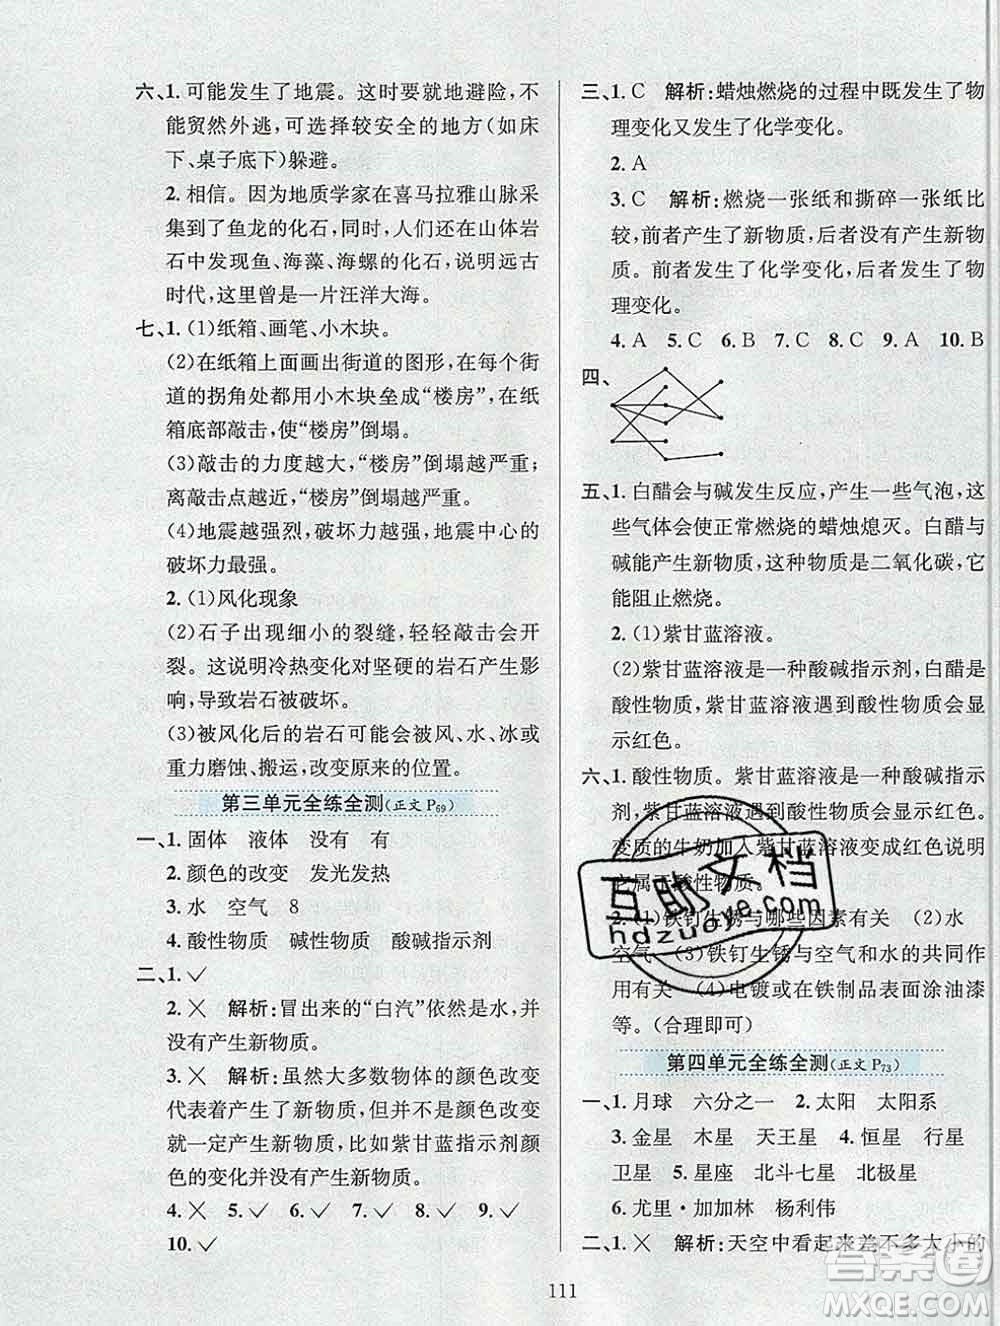 六、1. 可能发生了地震。这时要就地避险,不
能贸然外逃,可选择较安全的地方(如床
下、桌子底下)躲避。
2. 相信。因为地质学家在喜马拉雅山脉采
集到了鱼龙的化石。人们还在山体岩
石中发现鱼、海藻、海螺的化石,说明远古
时代,这里曾是一片汪洋大海。
七、1. (1)纸箱、画笔、小木块。
(2)在纸箱上面画出街道的图形,在每个街
道的拐角处都用小木块垒成“楼房”;在纸
箱底部敲击,使“楼房”倒塌。
(3)敲击的力度越大,“楼房”倒塌越严重;
离敲击点越近,“楼房”倒塌越严重。
(4)地震越强烈,破坏力越强,地震中心的
破坏力最强。
2. (1)风化现象
(2)石子出现细小的裂缝,轻轻敲击会开
裂。这说明冷热变化对坚硬的岩石产生影
响,导致岩石被破坏。
(3)被风化后的岩石可能会被风、水、冰或
重力磨蚀、搬运,改变原来的位置。
第三单元全练全测(正文 P69)
一、1. 固体 液体 没有 有
2. 颜色的改变 发光发热
3. 水 空气 8
4. 酸性物质 碱性物质 酸碱指示剂
二、1. ✓
2. ✕ 解析:冒出来的“白汽”依然是水,并
没有产生新物质。
3. ✕ 解析:虽然大多数物体的颜色改变
代表着产生了新物质,但是颜色改变并不
一定产生新物质,比如紫甘蓝指示剂颜
色的变化并没有产生新物质。
4. ✕ 5. ✓ 6. ✓ 7. ✓ 8. ✓ 9. ✓
10. ✓
三、1. C 解析:蜡烛燃烧的过程中既发生了物
理变化又发生了化学变化。
2. A
3. C 解析:燃烧一张纸和撕碎一张纸比
较,前者产生了新物质,后者没有产生新物
质。前者发生了化学变化,后者发生了物
理变化。
4. A 5. C 6. B 7. C 8. C 9. A 10. B
四、
五、1. 白醋会与碱发生反应,产生一些气泡,这
些气体会使正常燃烧的蜡烛熄灭。白醋与
碱能产生新物质,这种物质是二氧化碳,它
能阻止燃烧。
2. (1)紫甘蓝溶液。
(2)紫甘蓝溶液是一种酸碱指示剂,白醋是
酸性物质,紫甘蓝溶液遇到酸性物质会显
示红色。
六、1. 酸性物质。紫甘蓝溶液是一种酸碱指示
剂,紫甘蓝溶液遇到酸性物质会显示红色。
变质的牛奶加入紫甘蓝溶液变成红色说明
它属于酸性物质。
2. (1)铁钉生锈与哪些因素有关 (2)水
空气 (3)铁钉生锈与空气和水的共同作
用有关 (4)电镀或在铁制品表面涂油漆
等。(合理即可)
第四单元全练全测(正文 P73)
一、1. 月球 六分之一 2. 太阳 太阳系
3. 金星 木星 天王星 4. 恒星 行星
卫星 5. 星座 北斗七星 北极星
6. 尤里·加加林 杨利伟
二、1. ✕ 解析:天空中看起来差不多大小的
111
互助文档
hdzuoye.com
答案圈
MXQE.COM